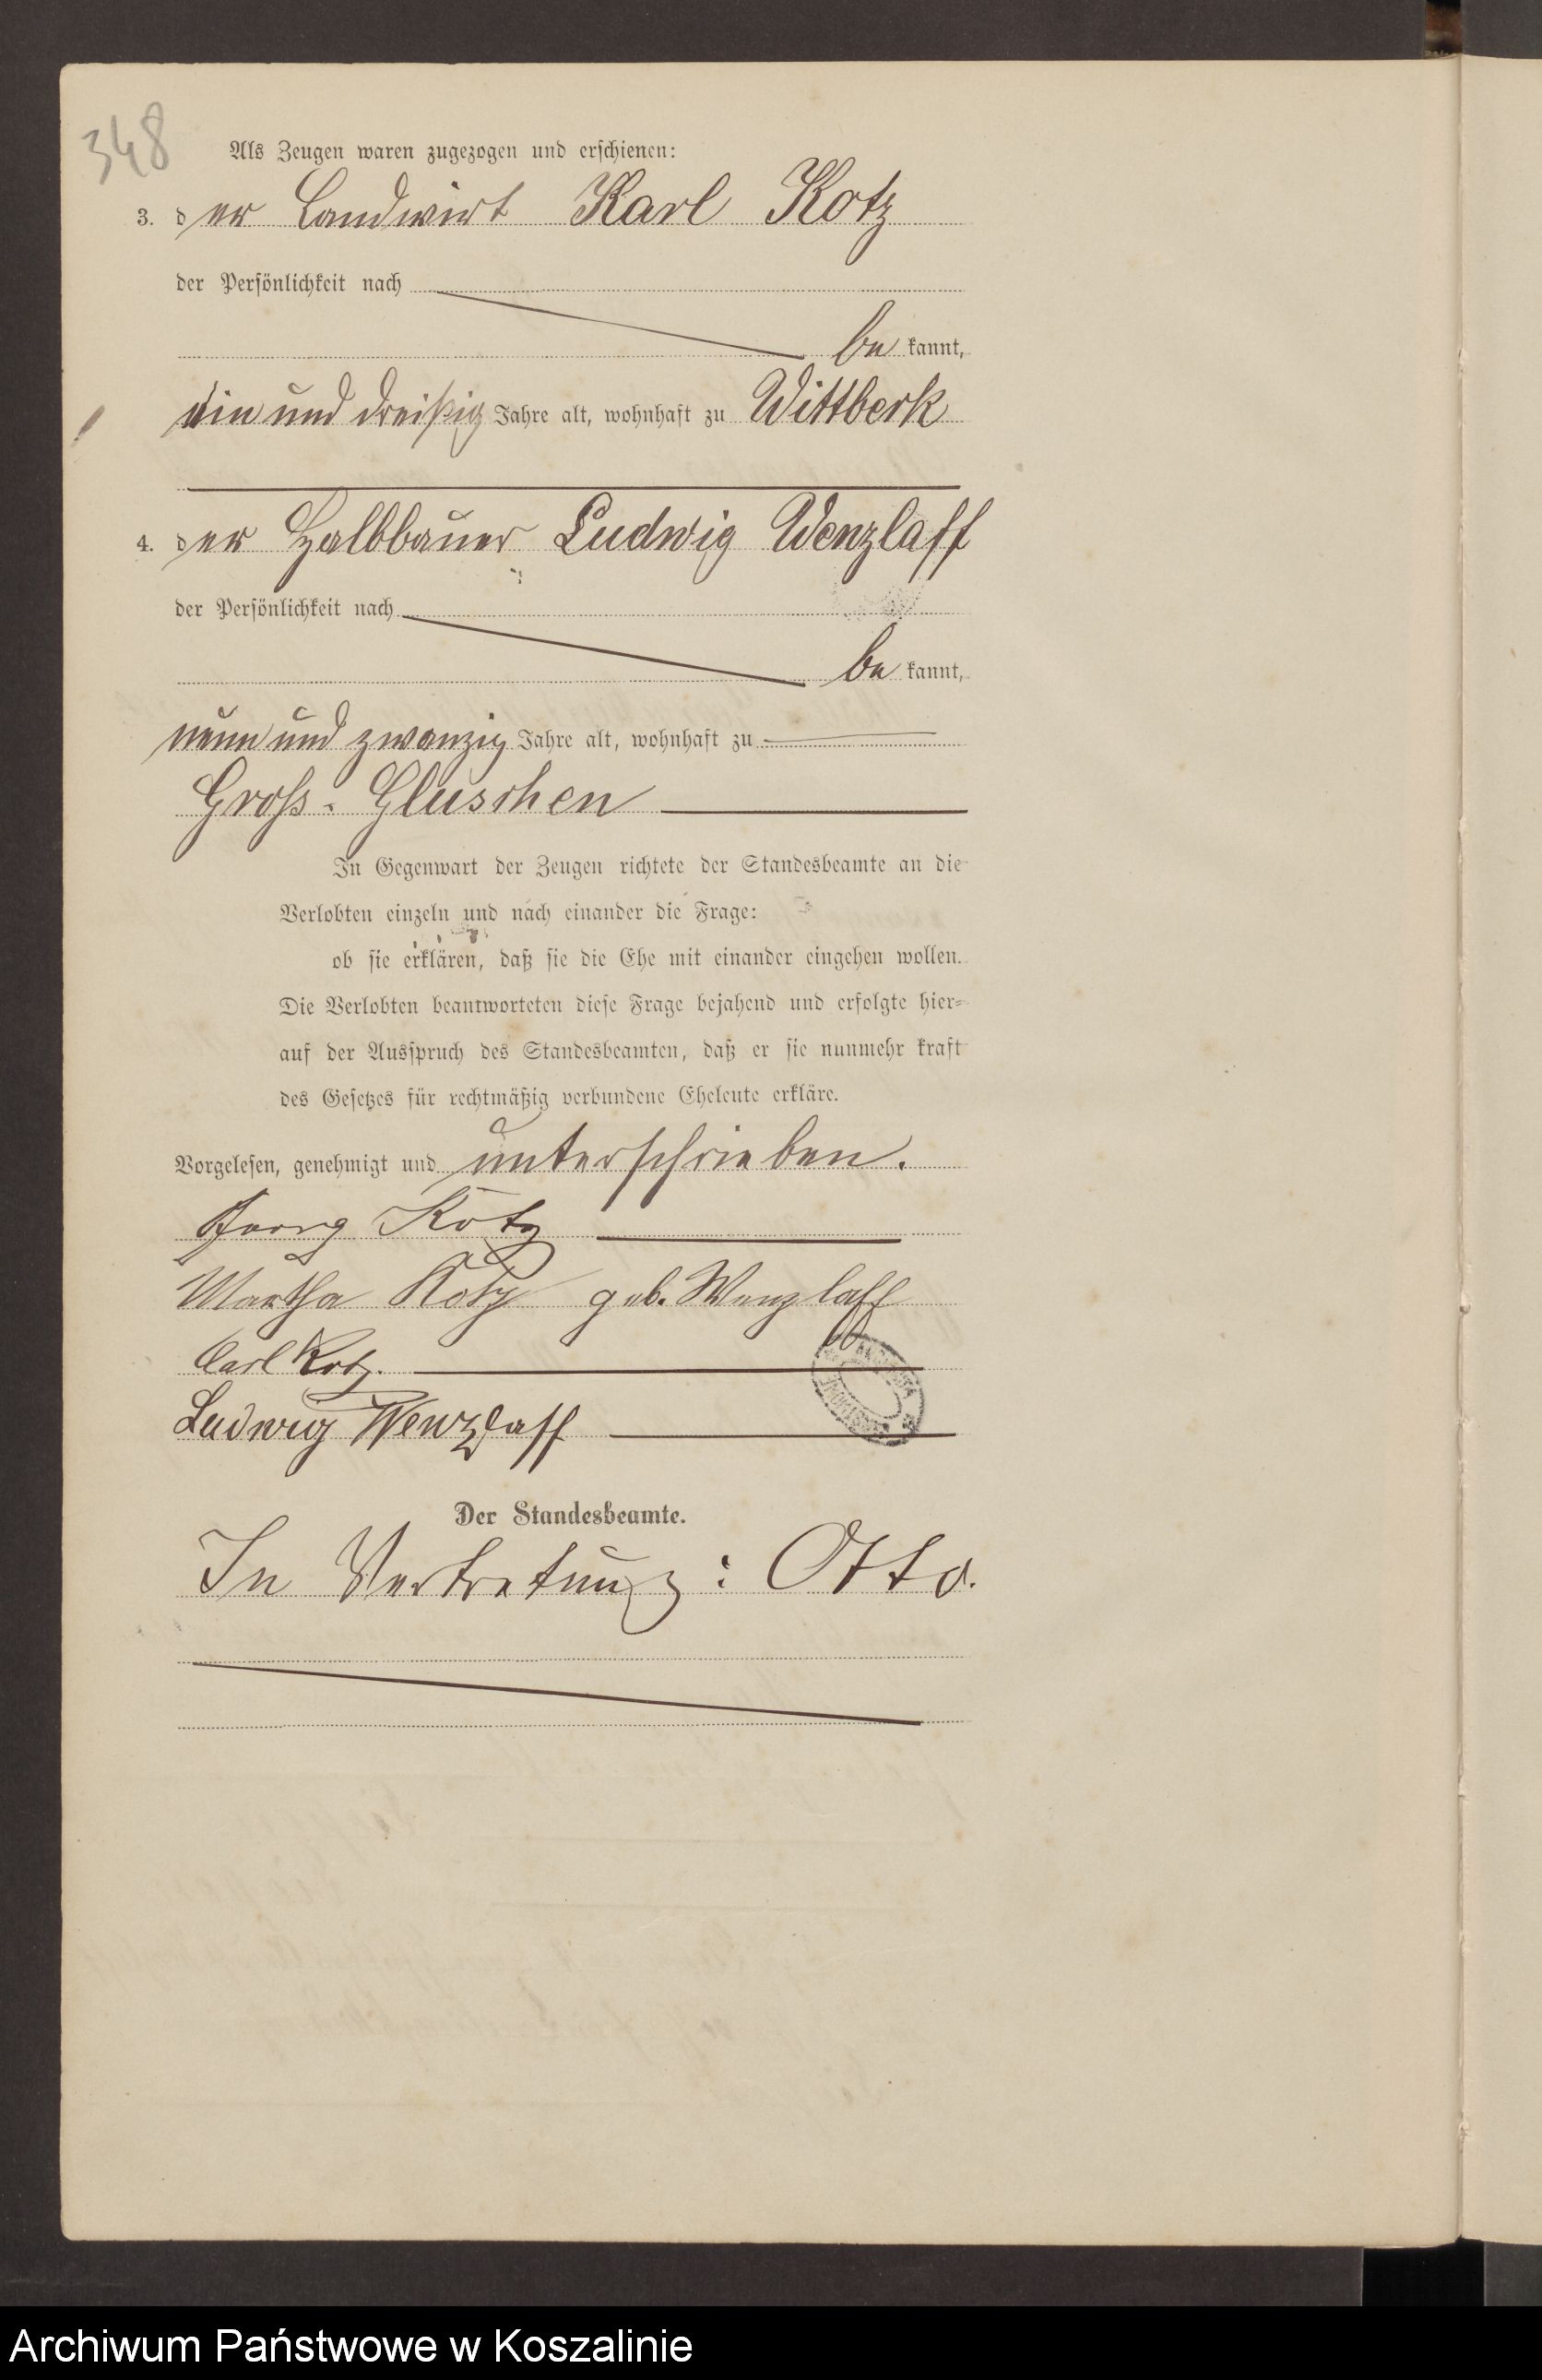 348
Als Zeugen waren zugezogen und erschienen:
3. der Landwirt Karl Kotz
der Persönlichkeit nach
be kannt,
ein und dreißig Jahre alt, wohnhaft zu Wittbeck
4. der Halbbauer Ludwig Wenzlaff
der Persönlichkeit nach
be kannt,
neun und zwanzig Jahre alt, wohnhaft zu
Gross-Gluschen
In Gegenwart der Zeugen richtete der Standesbeamte an die
Verlobten einzeln und nach einander die Frage:
ob sie erklären, daß sie die Ehe mit einander eingehen wollen.
Die Verlobten beantworteten diese Frage bejahend und erfolgte hier-
auf der Ausspruch des Standesbeamten, daß er sie nunmehr kraft
des Gesetzes für rechtmäßig verbundene Eheleute erkläre.
Vorgelesen, genehmigt und unterschrieben.
Kotz
Martha Kotz geb. Wenzlaff
Carl Kotz.
Ludwig Wenzlaff
Der Standesbeamte.
In Vertretung: Otto.
Archiwum Państwowe w Koszalinie